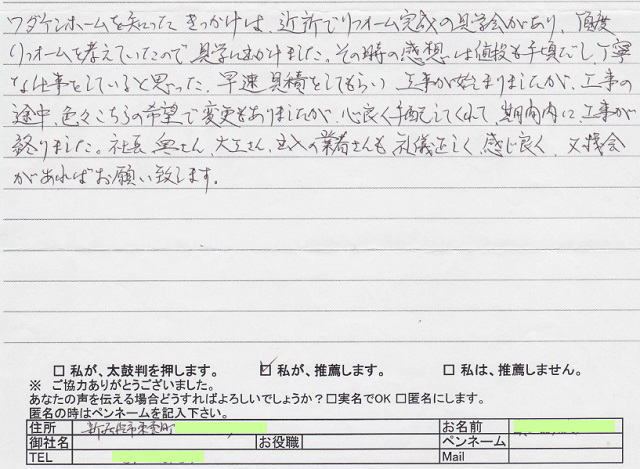 ワダケンホームを知ったきっかけは、近所でリフォーム完成の見学会があり、頂度
リフォームを考えていたので見学に出かけました。その時の感想は値段も手頃だし、丁寧
な仕事をしていると思った。早速見積をしてもらい工事が始まりましたが、工事の
途中、色々こちらの希望で変更もありましたが、心良く手配してくれて、期間内に工事が
終りました。社長、奥さん、大工さん、出入の業者さんも礼儀正しく、感じ良く、又機会
があればお願い致します。
□ 私が、太鼓判を押します。 ☑ 私が、推薦します。 □ 私は、推薦しません。
※ ご協力ありがとうございました。
あなたの声を伝える場合どうすればよろしいでしょうか？□実名でOK □匿名にします。
匿名の時はペンネームを記入下さい。
住所 お名前
御社名 お役職 ペンネーム
TEL Mail